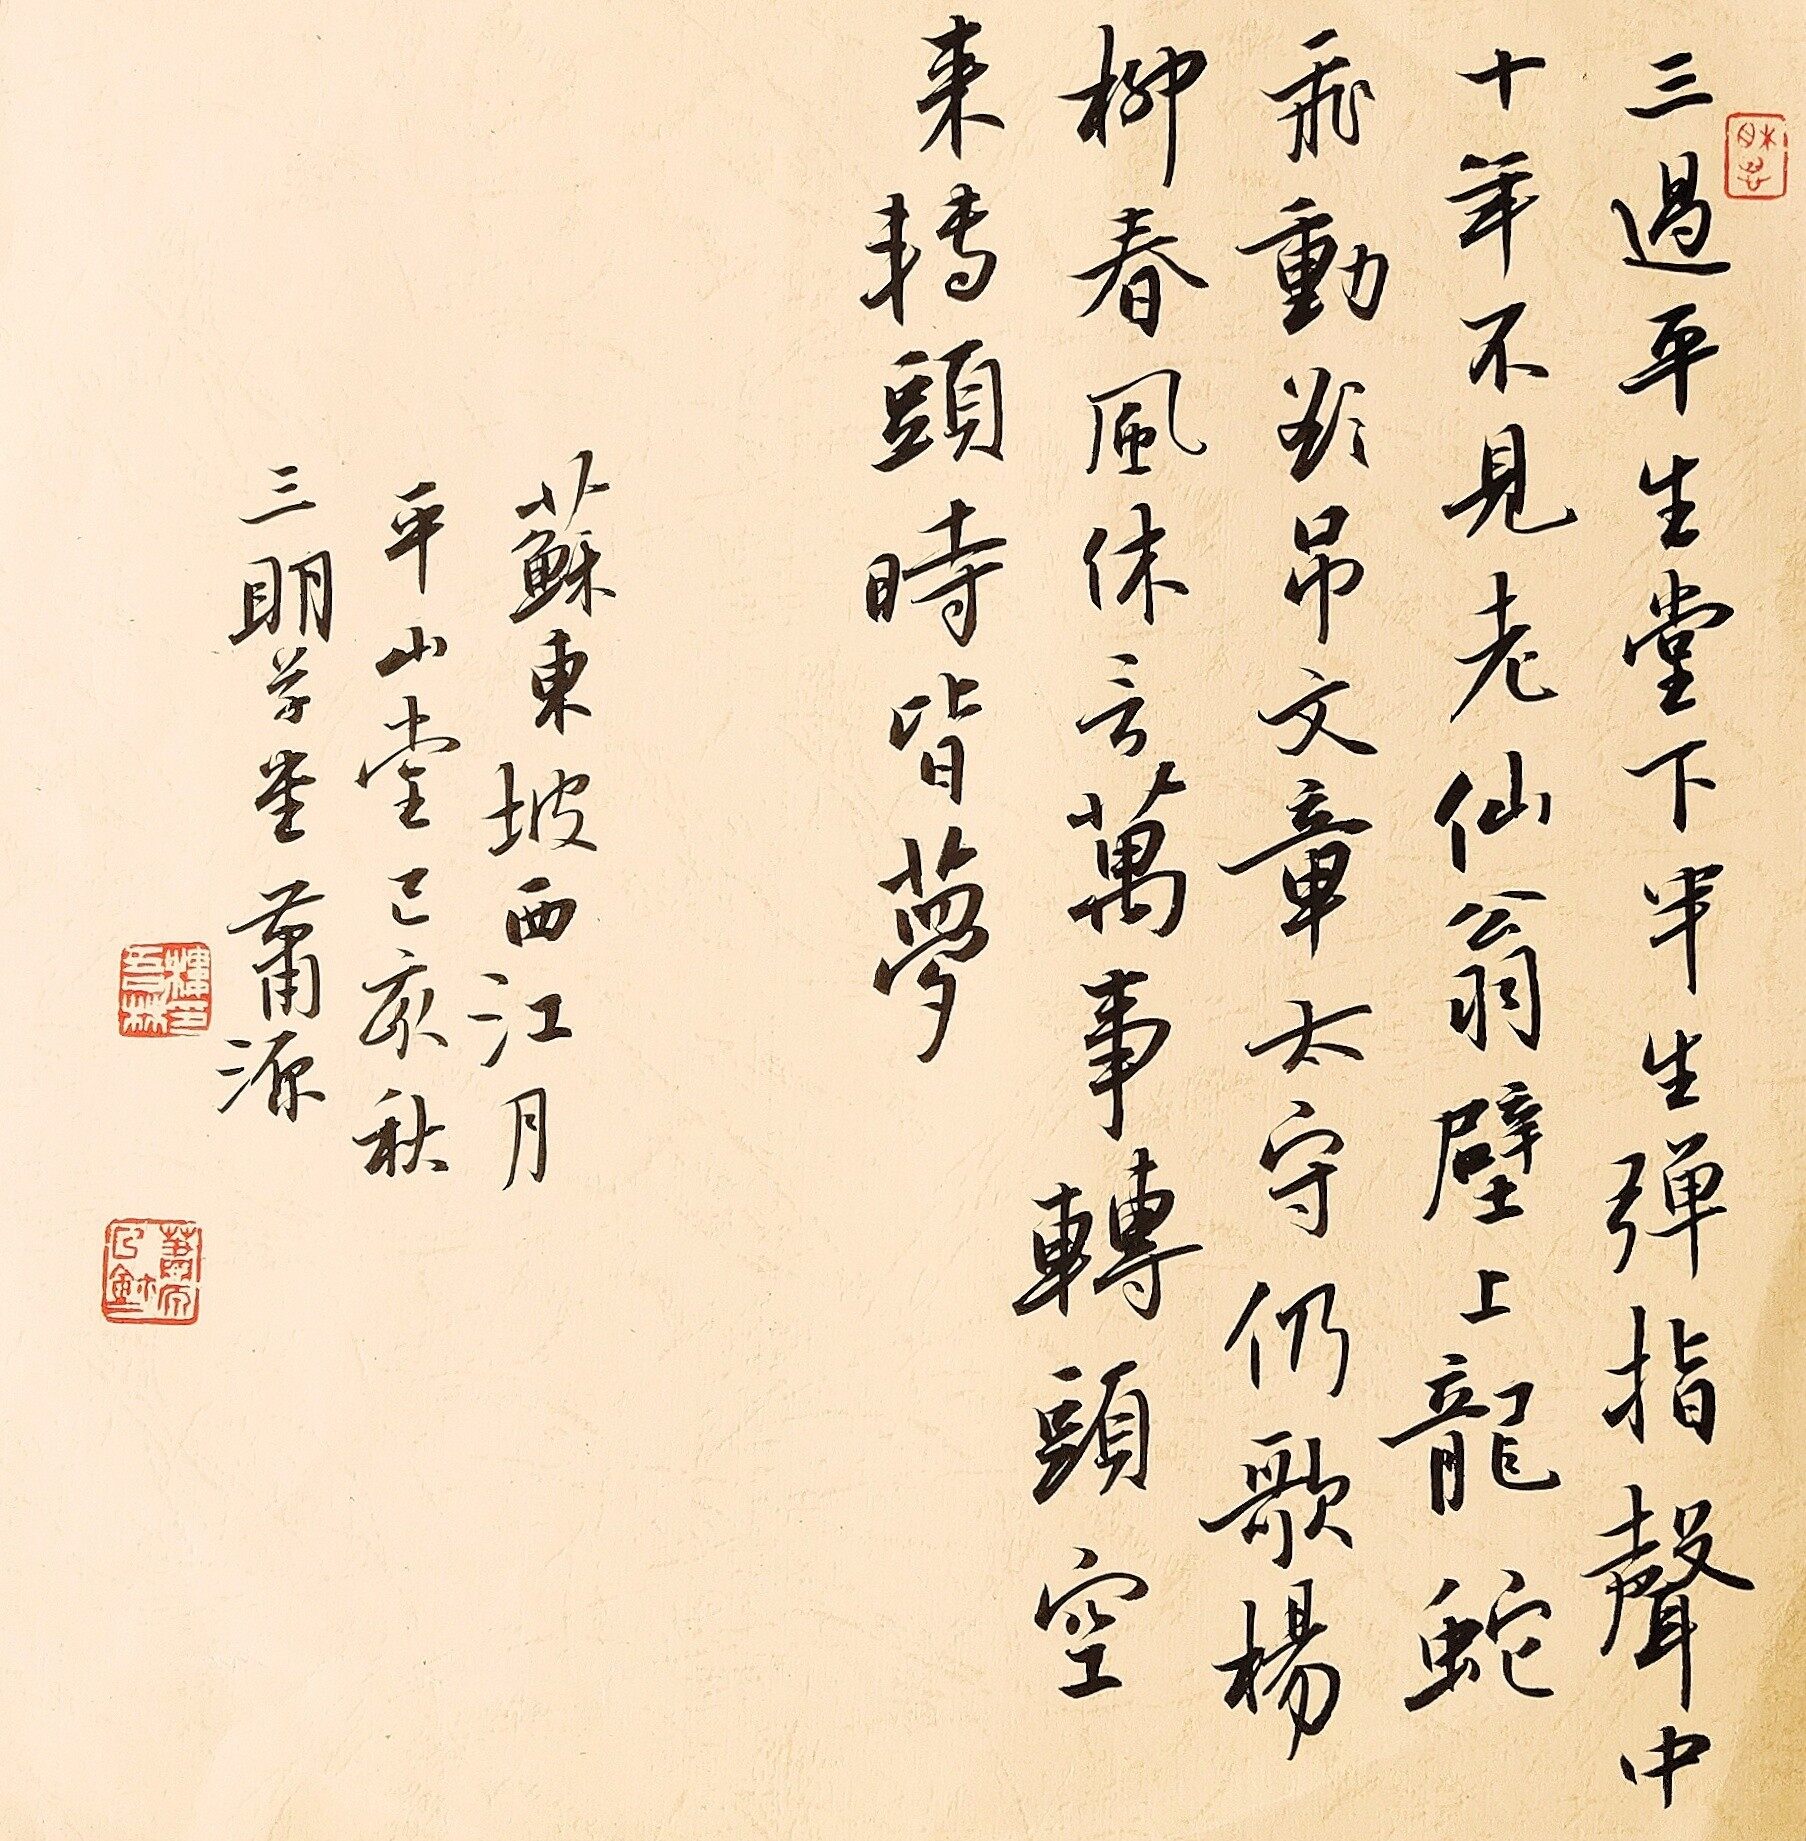 三過平生堂下半生弹指聲中
十年不見老仙翁壁上龍蛇
飛動欲吊文章太守仍歌楊
柳春風休言萬事轉頭空
来轉頭時皆夢
蘇東坡西江月
平山堂己亥秋
三明草堂蕭源